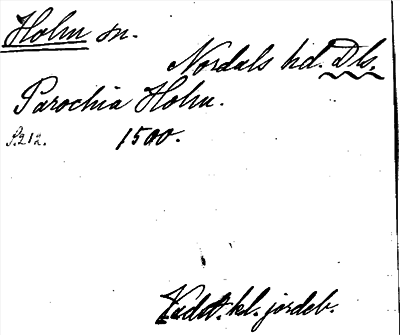 Holm sn.
Nordals hd. Dls.
Parochia Holm.
S. 212. 1500.
Vadst. kl. jordeb.